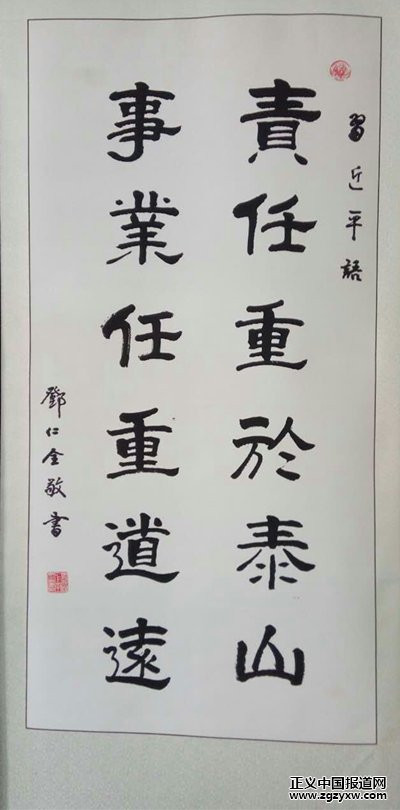 習近平語
責任重於泰山
事業任重道遠
鄧仁全敬書
正义中国报道网
www.zgzyxw.com